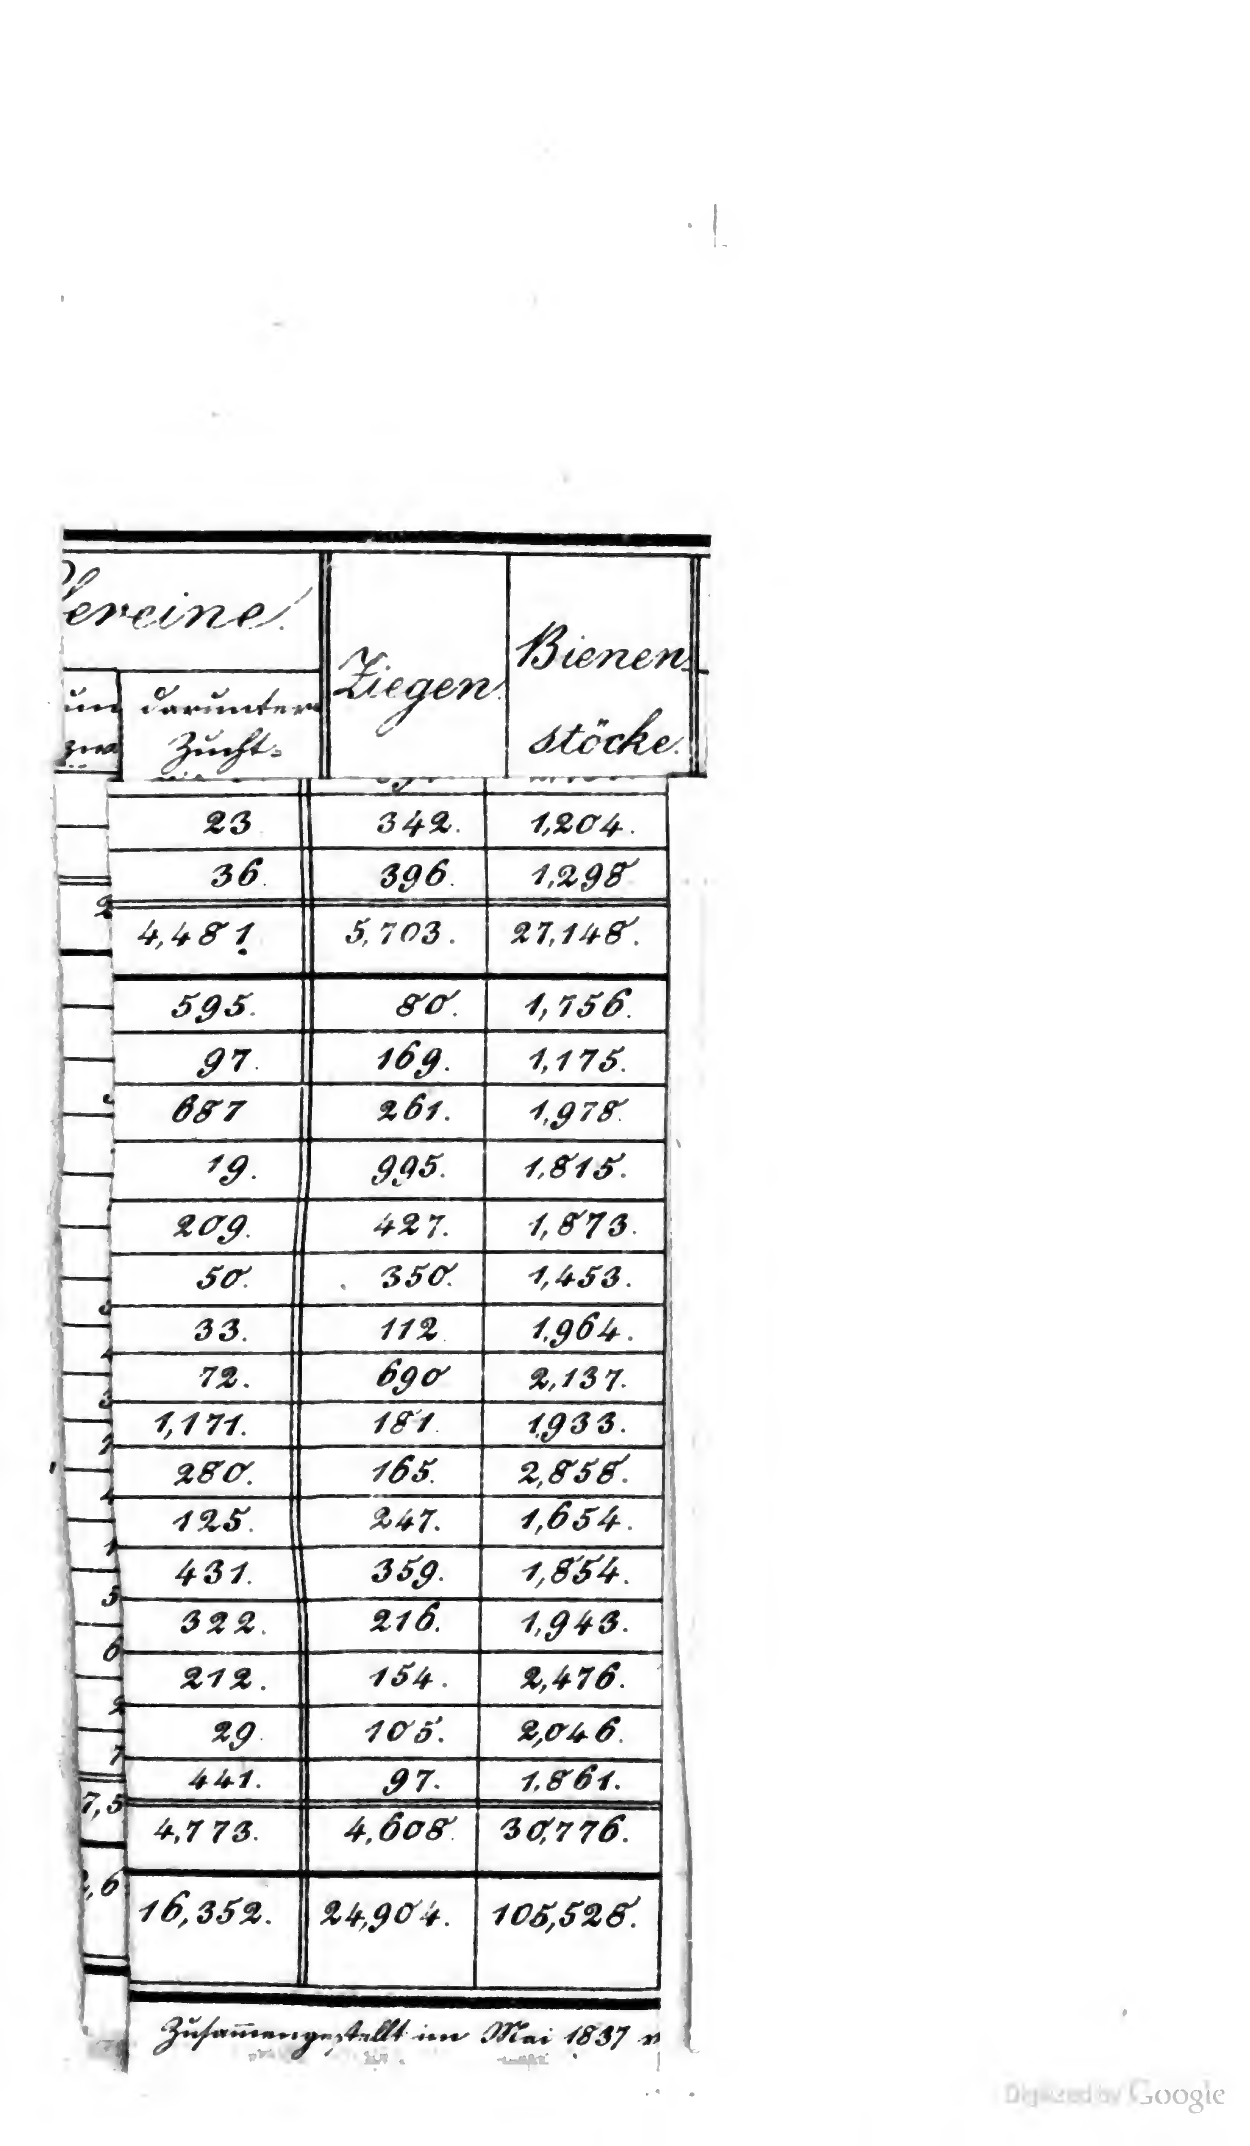 ereine.
darunter
Zucht-
Ziegen.
Bienen-
stöcke.
23 342. 1,204.
36. 396. 1,298
4,481. 5,703. 27,148.
595. 80. 1,756.
97. 169. 1,175.
687 261. 1,978.
19. 995. 1,815.
209. 427. 1,873.
50. 350. 1,453.
33. 112 1,964.
72. 690 2,137.
1,171. 181. 1,933.
280. 165. 2,858.
125. 247. 1,654.
431. 359. 1,854.
322. 216. 1,943.
212. 154. 2,476.
29. 105. 2,046.
441. 97. 1,861.
7,5 4,773. 4,608. 30,776.
,6 16,352. 24,904. 105,528.
Zusam̅engestellt im Mai 1837 v
Digitized by Google